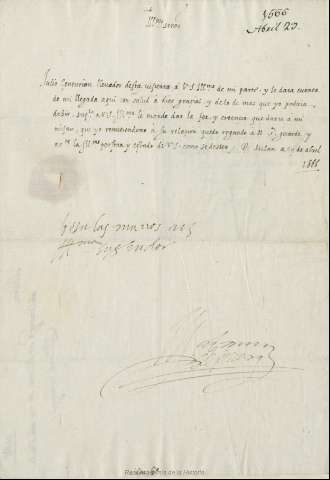 Ill.mo señor
1566
Abril 29
Julio Centurion lleuador desta visitara a V. S. Ill.ma de mi parte, y le dara cuenta
de mi llegada aqui con salud a Dios gracias, y de lo de mas que yo podria
dezir, V. S. Ill.ma le mande dar la fee, y creencia que daria a mi
mismo, que yo remitiendome a su quedo rogando a N. guarde, y
la Ill.ma persona y estado de V. S. como se dessea. D. Milan a de Abril
1566
besa las manos de
V. S. Ill.ma
seruidor
Real Academia de la Historia